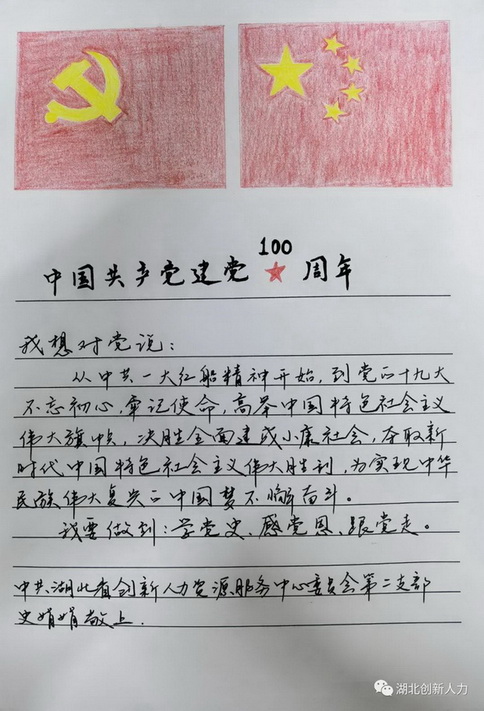 100
中国共产党建党★周年
我想对党说：
从中共一大红船精神开始，到党的十九大
不忘初心，牢记使命，高举中国特色社会主义
伟大旗帜，决胜全面建成小康社会，夺取新
时代中国特色社会主义伟大胜利，为实现中华
民族伟大复兴的中国梦不懈奋斗。
我要做到：学党史、感党恩、跟党走。
中共湖北省创新人力资源服务中心委员会第二支部
史娟娟敬上.
湖北创新人力